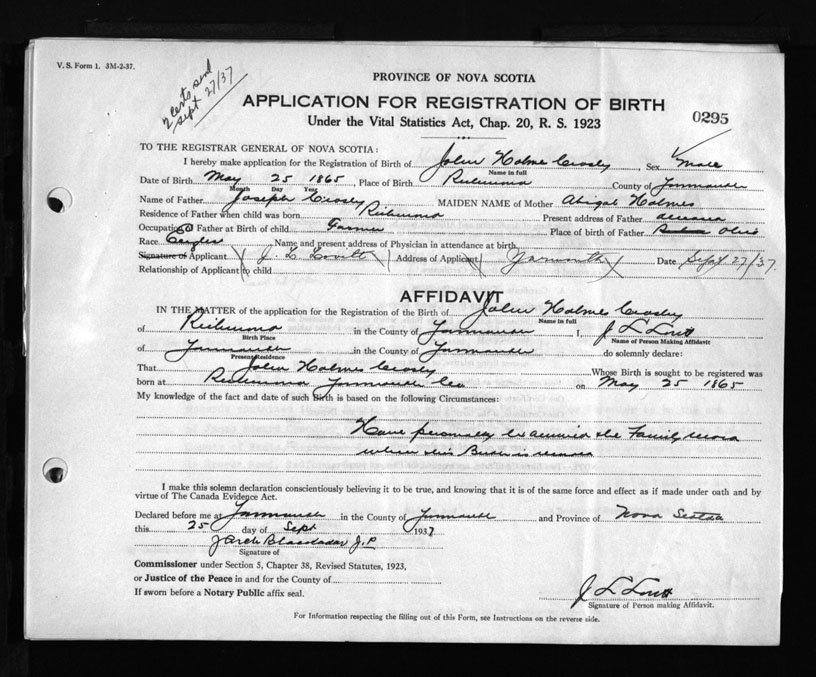 V. S. Form 1. 3M-2-37.
2 certs send
Sept 27/37
PROVINCE OF NOVA SCOTIA
APPLICATION FOR REGISTRATION OF BIRTH
0295
Under the Vital Statistics Act, Chap. 20, R. S. 1923
TO THE REGISTRAR GENERAL OF NOVA SCOTIA:
I hereby make application for the Registration of Birth of John Holmes Crosby, Sex Male
Name in full
Date of Birth May 25 1865, Place of Birth Richmond County of Yarmouth
Month Day Year
Name of Father Joseph Crosby MAIDEN NAME of Mother Abigal Holmes
Residence of Father when child was born Richmond Present address of Father deceased
Occupation of Father at Birth of child Farmer Place of birth of Father Ohio
Race English Name and present address of Physician in attendance at birth
Signature of Applicant J. L. Lovitt Address of Applicant Yarmouth Date Sept 27/37.
Relationship of Applicant to child
AFFIDAVIT
IN THE MATTER of the application for the Registration of the Birth of John Holmes Crosby
Name in full
of Richmond in the County of Yarmouth I, J L Lovitt
Birth Place Name of Person Making Affidavit
of Yarmouth in the County of Yarmouth do solemnly declare:
Present Residence
That John Holmes Crosby Whose Birth is sought to be registered was
born at Richmond Yarmouth Co on May 25 1865
My knowledge of the fact and date of such Birth is based on the following Circumstances:
Have personally examined the Family record
where this Birth is record
I make this solemn declaration conscientiously believing it to be true, and knowing that it is of the same force and effect as if made under oath and by
virtue of The Canada Evidence Act.
Declared before me at Yarmouth in the County of Yarmouth and Province of Nova Scotia
this 25 day of Sept 1937
J Arch Blackadar J.P
Signature of
Commissioner under Section 5, Chapter 38, Revised Statutes, 1923,
or Justice of the Peace in and for the County of
If sworn before a Notary Public affix seal.
J L Lovitt
Signature of Person making Affidavit.
For Information respecting the filling out of this Form, see Instructions on the reverse side.